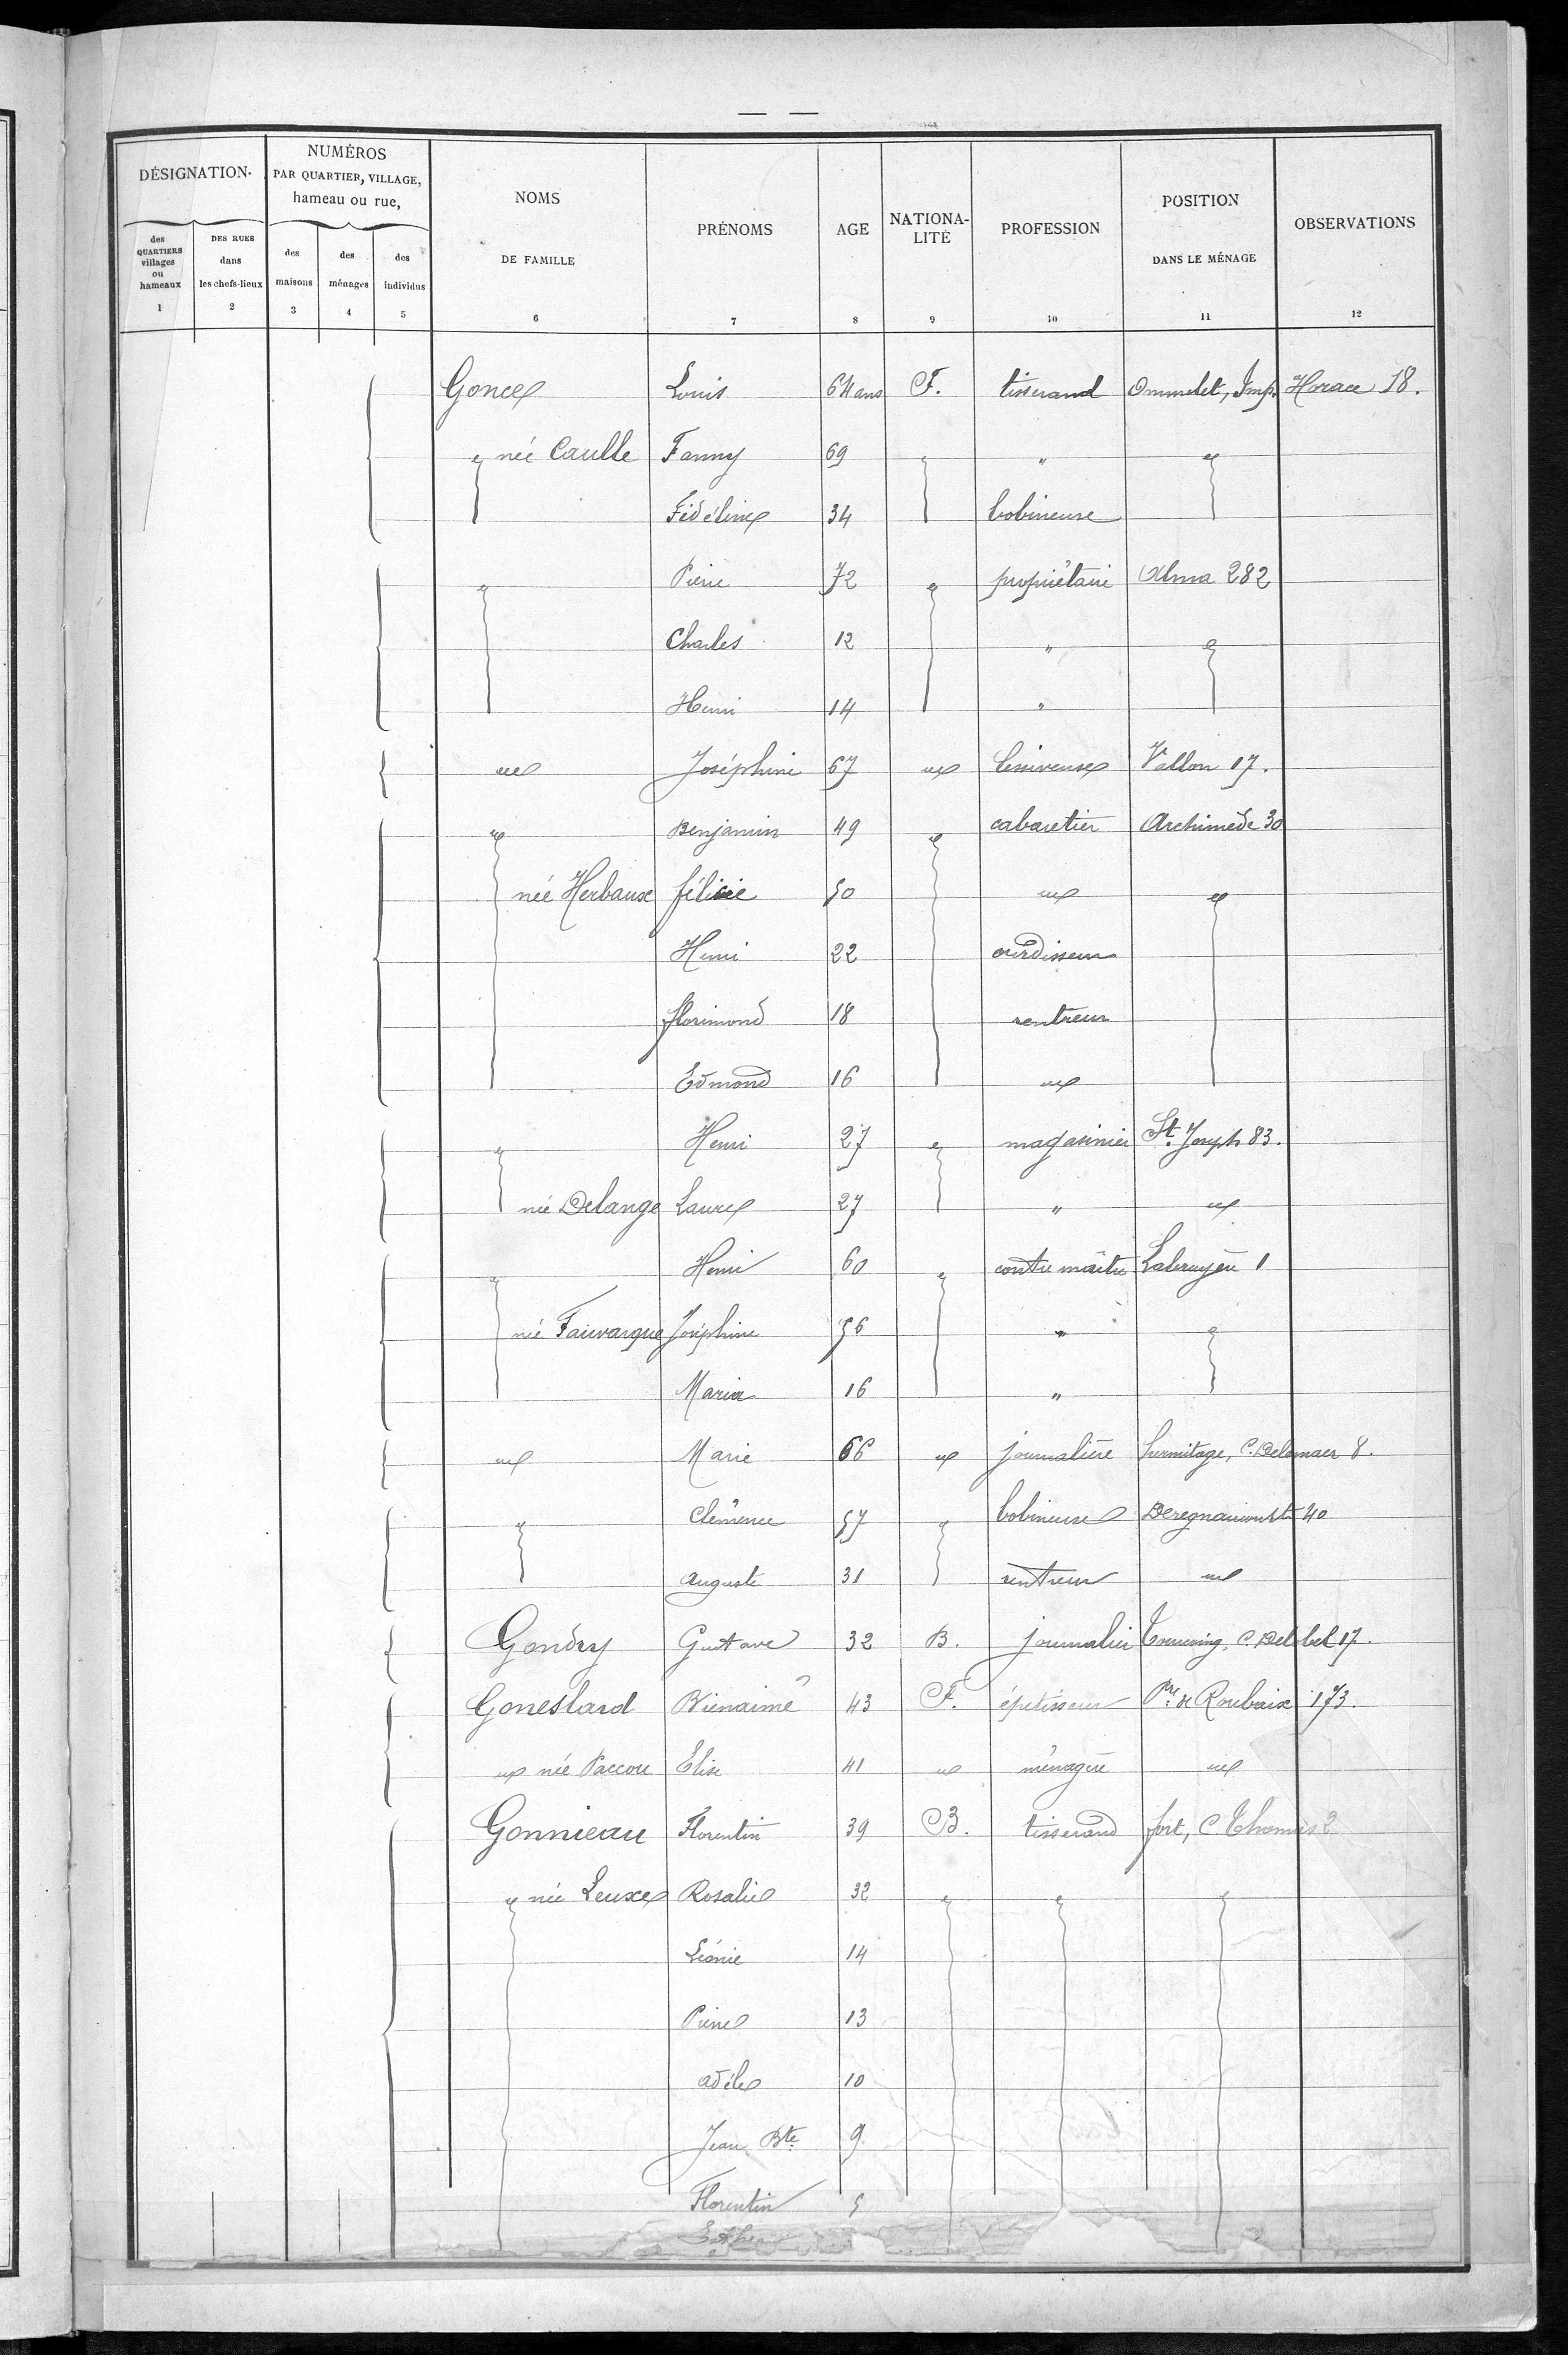 — —
DÉSIGNATION.
des QUARTIERS villages ou hameaux
1
DES RUES dans les chefs-lieux
2
NUMÉROS
PAR QUARTIER, VILLAGE,
hameau ou rue,
des maisons
3
des ménages
4
des individus
5
NOMS
DE FAMILLE
6
PRÉNOMS
7
AGE
8
NATIONA-
LITÉ
9
PROFESSION
10
POSITION
DANS LE MÉNAGE
11
OBSERVATIONS
12
Gonce Louis 64 ans F. tisserand Ommelet, Imp. Horace 18.
née Caulle Fanny 69 "
Fidéline 34 bobineuse
Pierre 72 propriétaire Alma 282
Charles 12 "
Henri 14 "
Joséphine 67 lessiveuse Vallon 17.
Benjamin 49 cabaretier Archimède 30
née Herbaux félicie 50
Henri 22 ourdisseur
florimond 18 rentreur
Edmond 16
Henri 27 magasinier St. Joseph 83.
née Delange Laure 27 "
Henri 60 contre maître Labruyère 1
née Faiwarque Joséphine 56 "
Maria 16 "
Marie 66 journalière hermitage, C. Delemaer 8.
Clémence 57 bobineuse Deregnaucourt 40
auguste 31 rentreur
Gondry Gustave 32 B. journalier Tourcoing, C. Delobel 17.
Goneslard Bienaimé 43 F. épetisseur de Roubaix 173.
née Paccou Elise 41 ménagère
Gonnieau Florentin 39 B. tisserand fort, C. Thomas 2
née Leuxe Rosalie 32
Léonie 14
Pierre 13
adèle 10
Jean Bte 9
Florentin 5